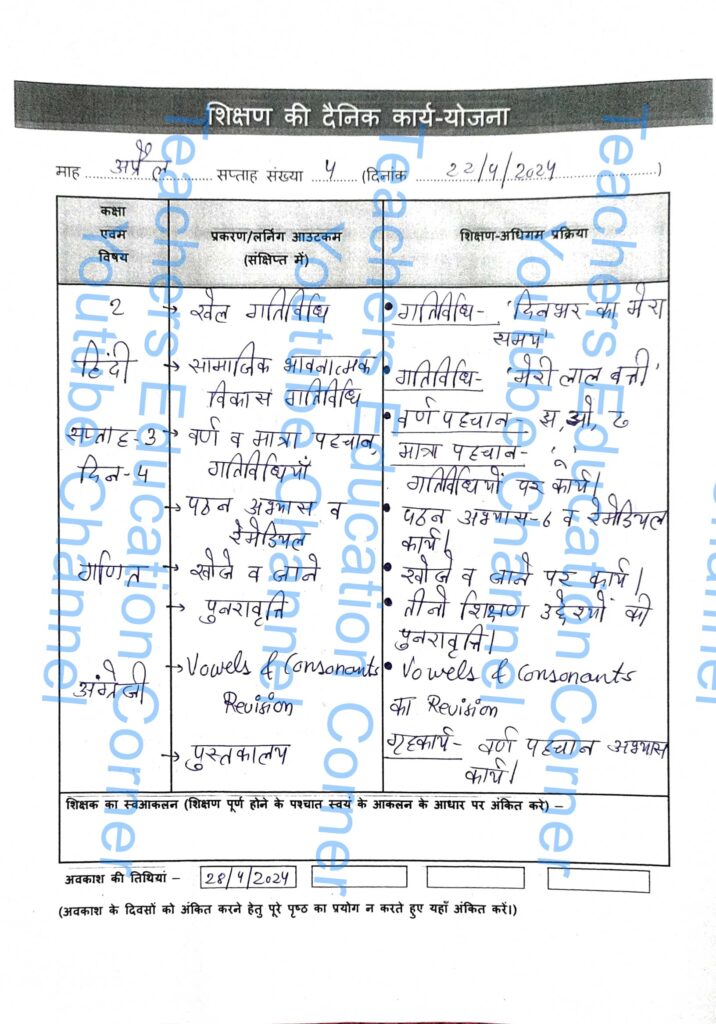 शिक्षण की दैनिक कार्य-योजना
माह अप्रैल सप्ताह संख्या 4 (दिनांक 22/4/2024)
कक्षा
एवम
विषय
प्रकरण/लर्निंग आउटकम
(संक्षिप्त में)
शिक्षण-अधिगम प्रक्रिया
2
हिंदी
सप्ताह-3
दिन-4
गणित
अंग्रेजी
→ खेल गतिविधि
→ सामाजिक भावनात्मक
विकास गतिविधि
→ वर्ण व मात्रा पहचान,
गतिविधियाँ
→ पठन अभ्यास व
रेमेडियल
→ खोजे व जाने
→ पुनरावृत्ति
→ Vowels & Consonants
Revision
→ पुस्तकालय
• गतिविधि- 'दिनभर का मेरा
समय'
• गतिविधि- 'मेरी लाल बत्ती'
• वर्ण पहचान- झ, ओ, ट
मात्रा पहचान-
गतिविधियों पर कार्य।
• पठन अभ्यास-6 व रेमेडियल
कार्य।
• खोजे व जाने पर कार्य।
• तीनो शिक्षण उद्देश्यों की
पुनरावृत्ति।
• Vowels & Consonants
का Revision
गृहकार्य- वर्ण पहचान अभ्यास
कार्य।
शिक्षक का स्वआकलन (शिक्षण पूर्ण होने के पश्चात स्वयं के आकलन के आधार पर अंकित करे) –
अवकाश की तिथियां – 28/4/2024
(अवकाश के दिवसों को अंकित करने हेतु पूरे पृष्ठ का प्रयोग न करते हुए यहाँ अंकित करें।)
Teachers Education Corner
Youtube Channel
Teachers Education Corner
Youtube Channel
Teachers Education Corner
Youtube Channel